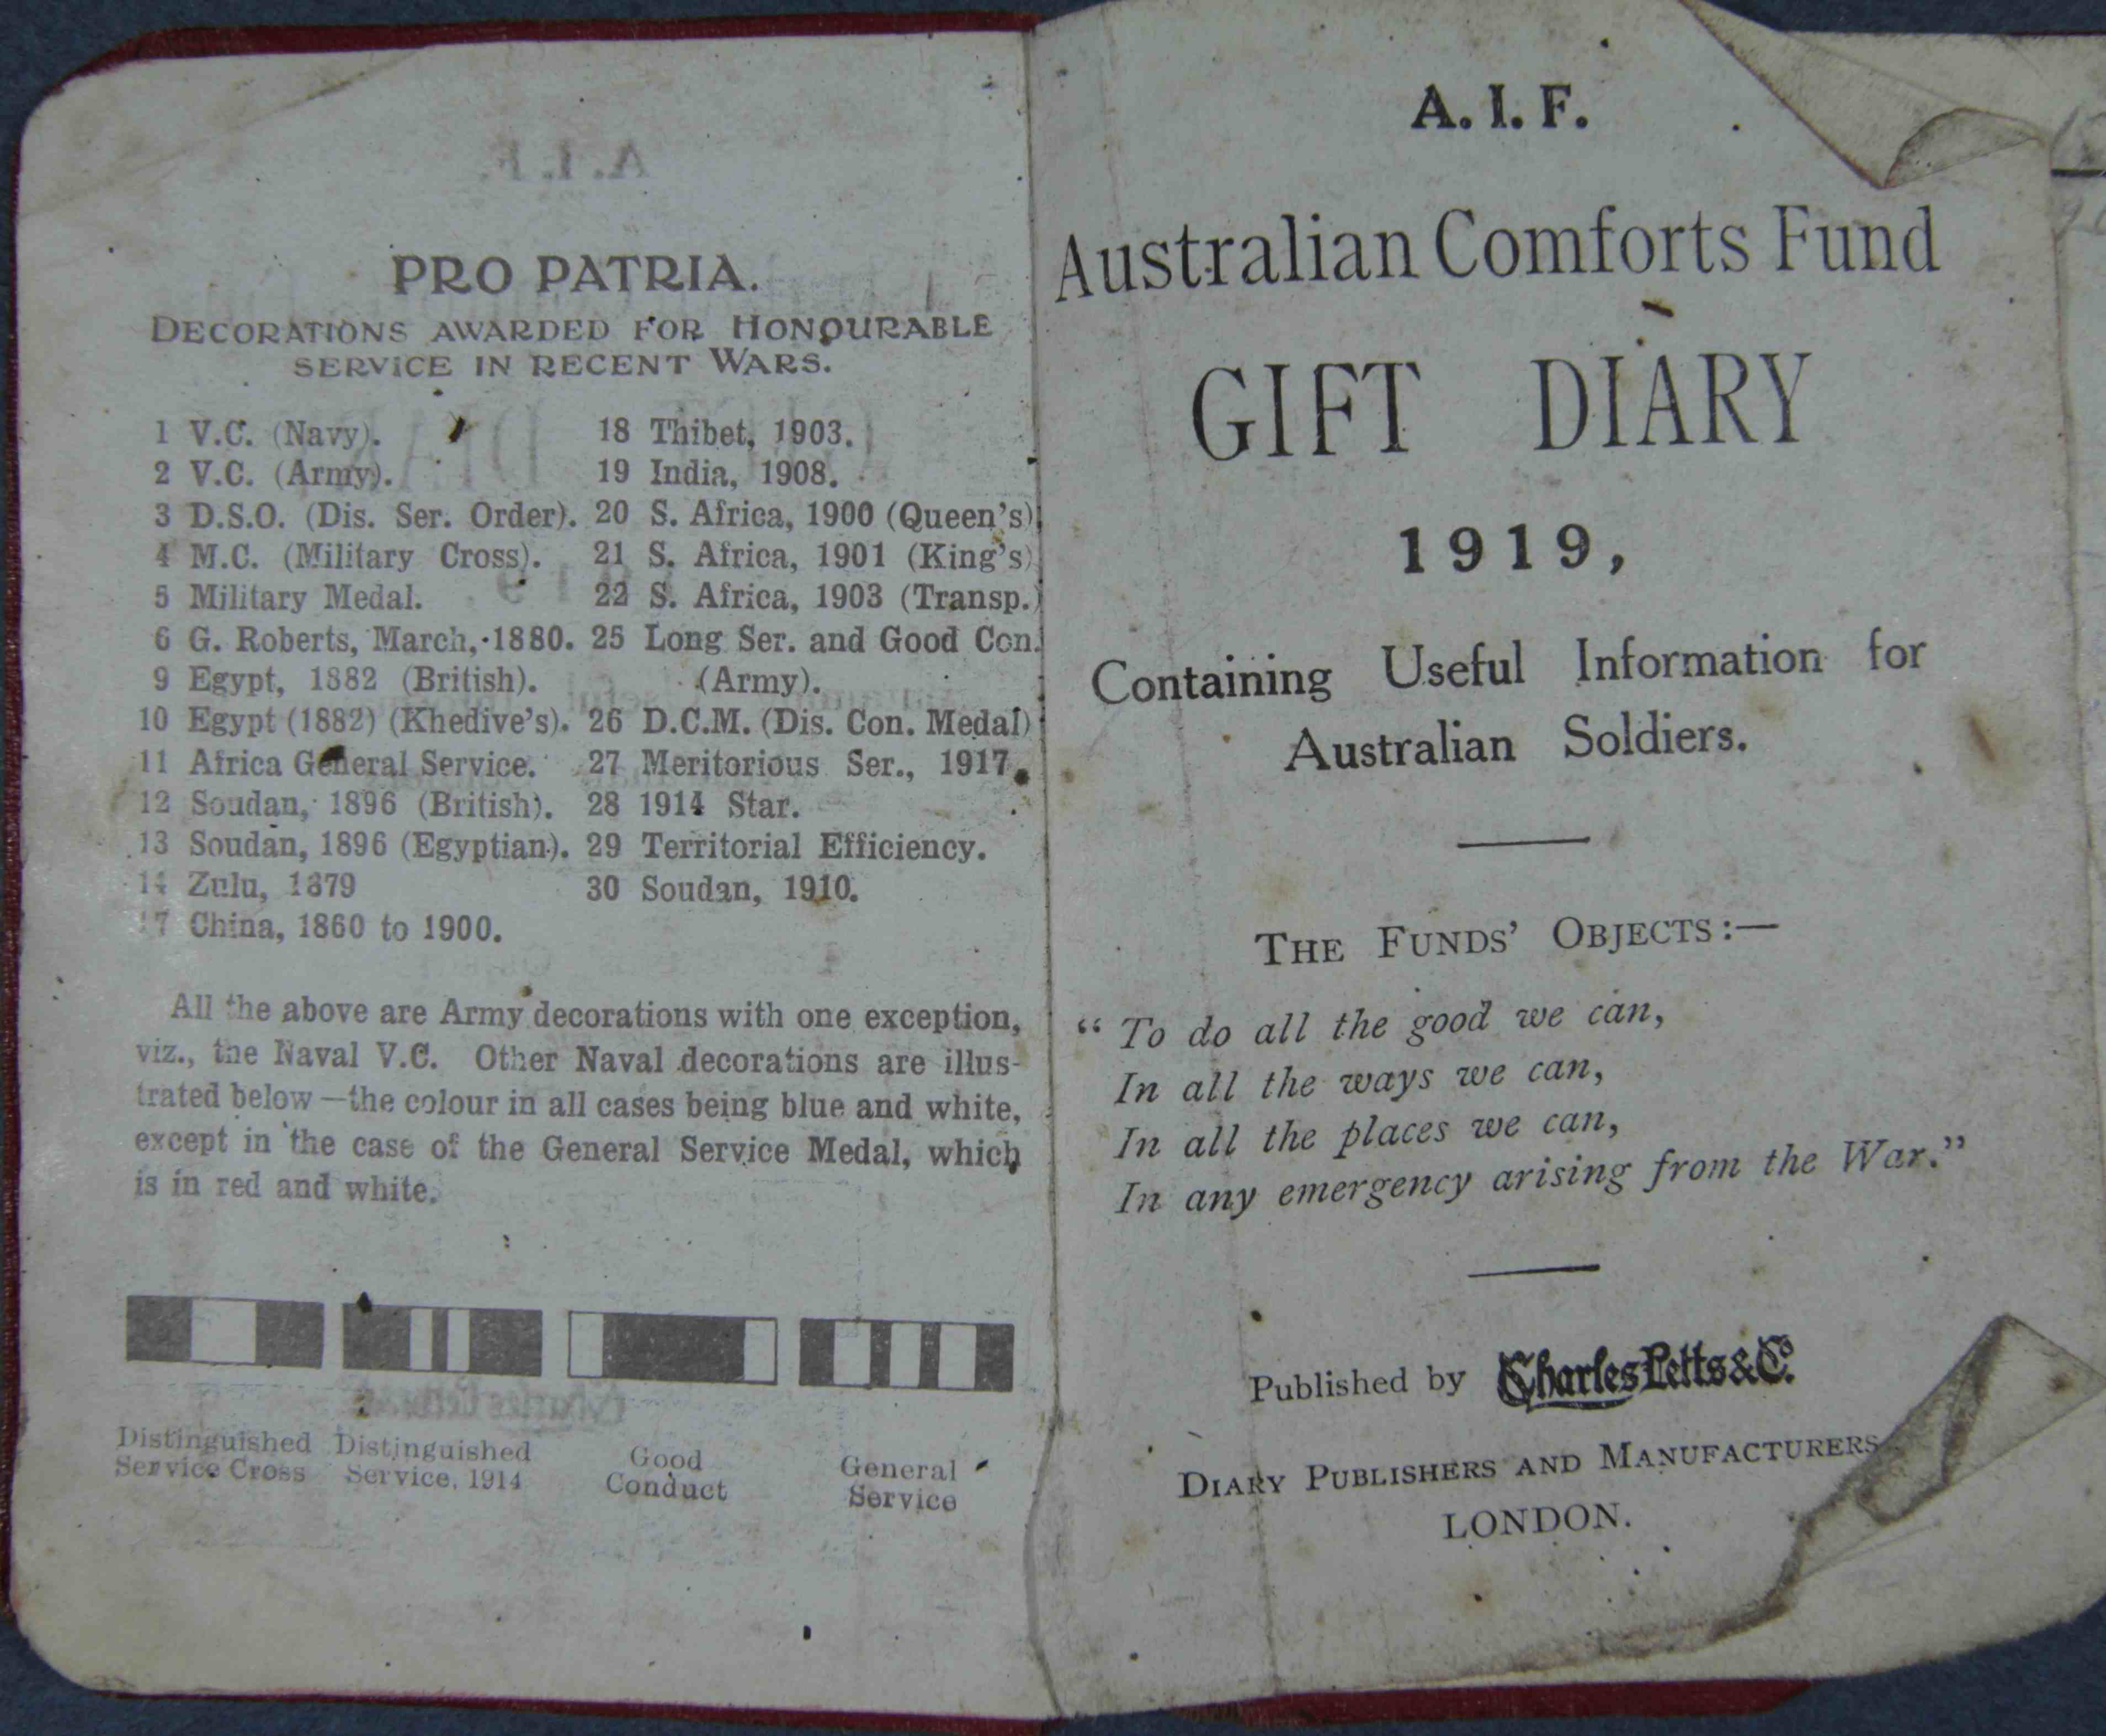 PRO PATRIA.
DECORATIONS AWARDED FOR HONOURABLE
SERVICE IN RECENT WARS.
1 V.C. (Navy).
2 V.C. (Army).
3 D.S.O. (Dis. Ser. Order).
4 M.C. (Military Cross).
5 Military Medal.
6 G. Roberts, March, 1880.
9 Egypt, 1882 (British).
10 Egypt (1882) (Khedive's).
11 Africa General Service.
12 Soudan, 1896 (British).
13 Soudan, 1896 (Egyptian).
14 Zulu, 1879
17 China, 1860 to 1900.
18 Thibet, 1903.
19 India, 1908.
20 S. Africa, 1900 (Queen's)
21 S. Africa, 1901 (King's)
22 S. Africa, 1903 (Transp.)
25 Long Ser. and Good Con.
(Army).
26 D.C.M. (Dis. Con. Medal)
27 Meritorious Ser., 1917.
28 1914 Star.
29 Territorial Efficiency.
30 Soudan, 1910.
All the above are Army decorations with one exception,
viz., the Naval V.C. Other Naval decorations are illus-
trated below—the colour in all cases being blue and white,
except in the case of the General Service Medal, which
is in red and white.
Distinguished
Service Cross
Distinguished
Service, 1914
Good
Conduct
General
Service
A. I. F.
Australian Comforts Fund
GIFT DIARY
1919,
Containing Useful Information for
Australian Soldiers.
THE FUNDS' OBJECTS:—
"To do all the good we can,
In all the ways we can,
In all the places we can,
In any emergency arising from the War."
Published by Charles Letts & Co.
DIARY PUBLISHERS AND MANUFACTURERS
LONDON.